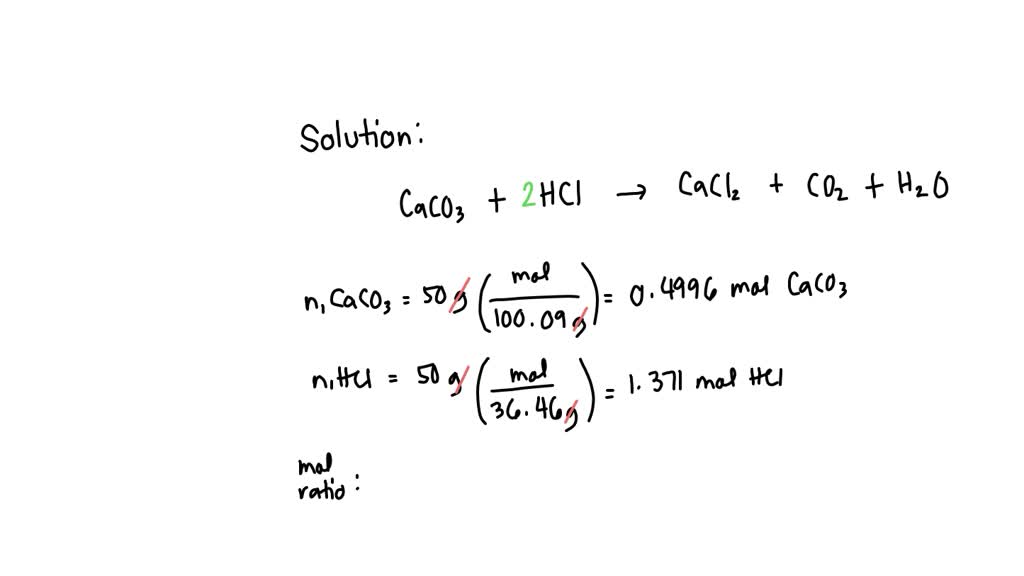 Solution:
CaCO₃ + 2HCl → CaCl₂ + CO₂ + H₂O
n, CaCO₃ = 50 g (mol / 100.09 g) = 0.4996 mol CaCO₃
n, HCl = 50 g (mol / 36.46 g) = 1.371 mol HCl
mol
ratio :